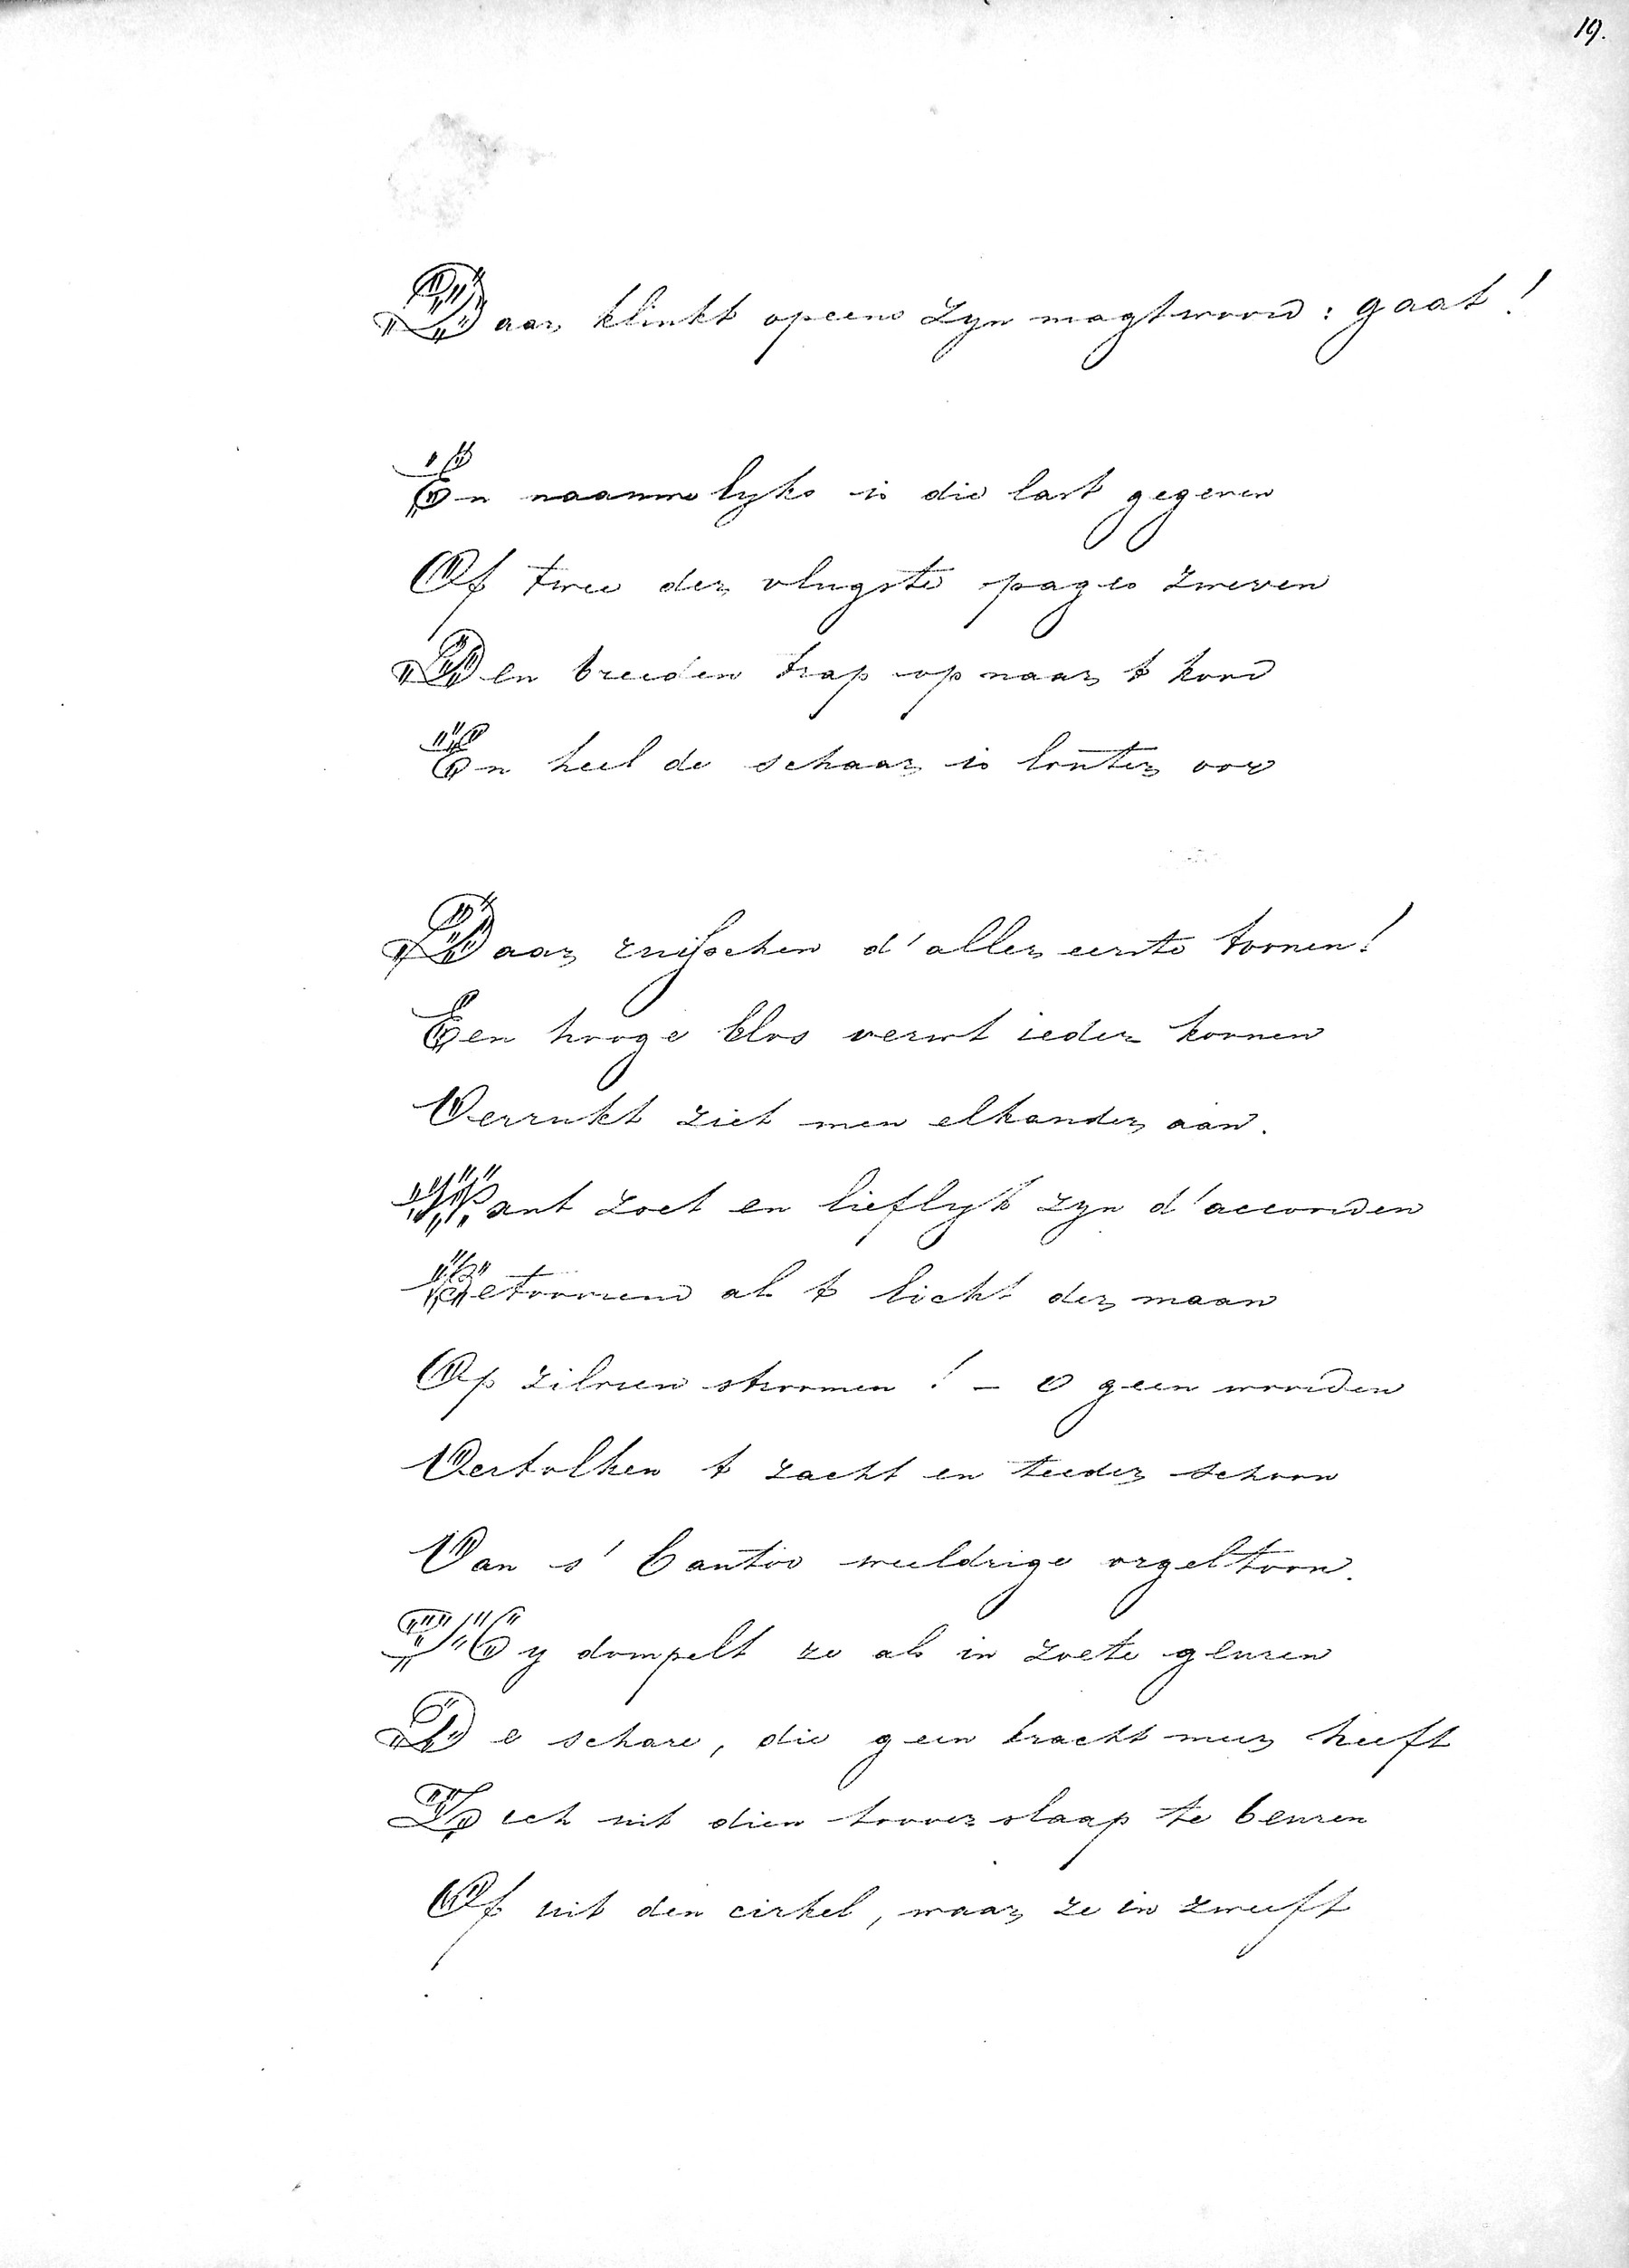 19.
Daar klinkt opeens zyn magtwoord: gaat!
En naauwlyks is die last gegeven
Of twee der vlugste pages zweven
Den breeden trap op naar t koor
En heel de schaar is louter oor
Daar ruischen d'aller eerste toonen!
Een hooge blos verwt ieder koonen
Verrukt ziet men elkander aan.
Want zoet en lieflyk zyn d'accorden
Betoovrend als t licht der maan
Op zilvren stroomen! – O geen woorden
Vertolken t zacht en teeder schoon
Van s' Cantors weeldrige orgeltoon.
Hy dompelt ze als in zoete geuren
De schare, die geen kracht meer heeft
Zich uit dien tooverslaap te beuren
Of uit den cirkel, waar ze in zweeft